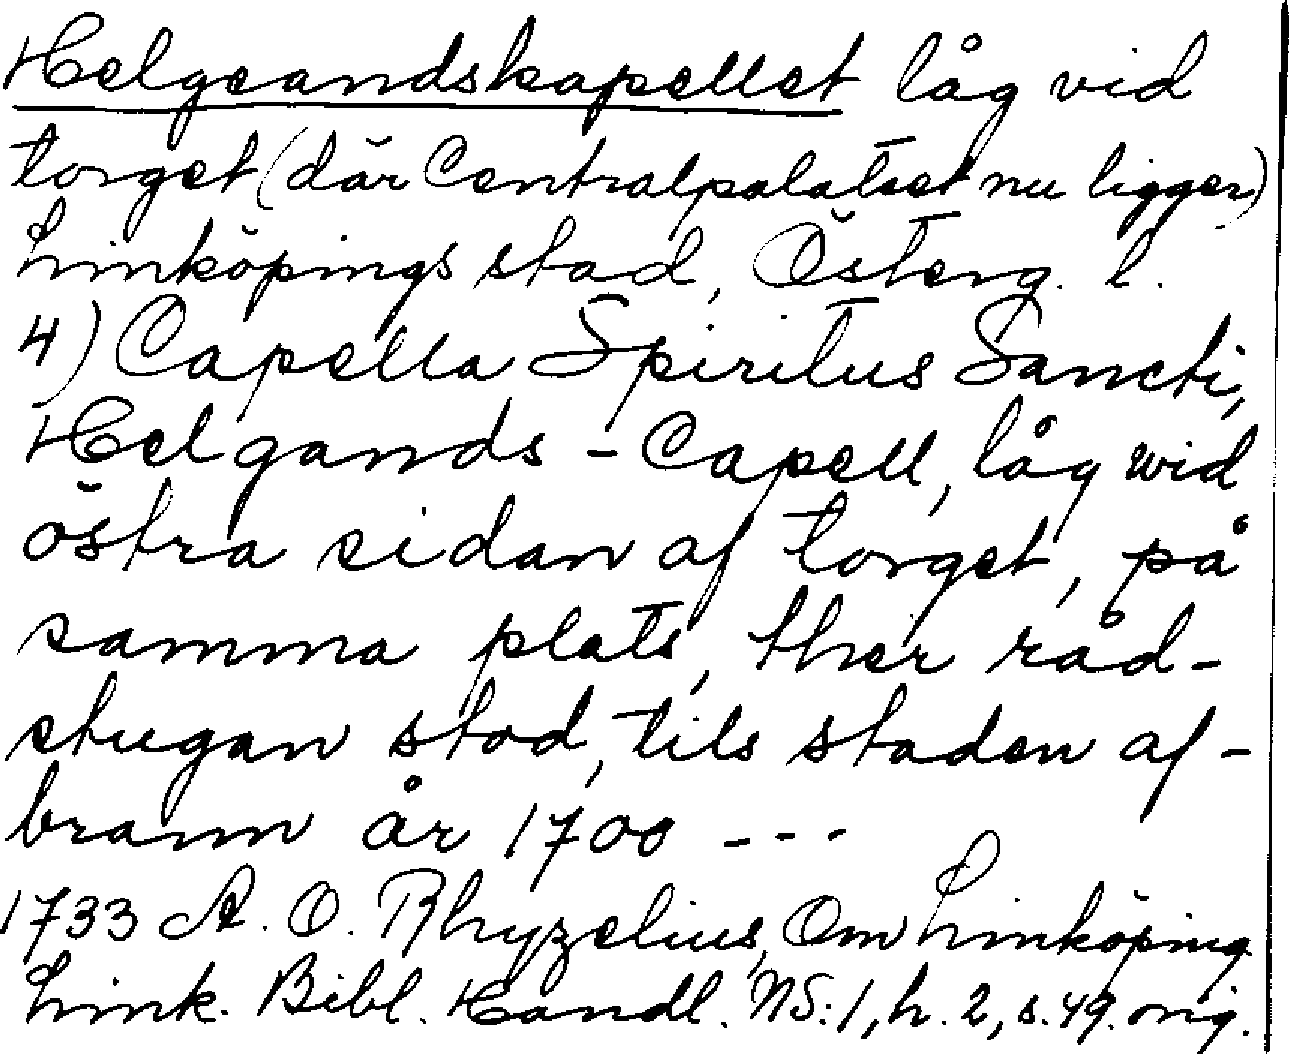 Helgeandskapellet låg vid
torget (där Centralpalatset nu ligger)
Linköpings stad, Österg. l.
4) Capella Spiritus Sancti,
Helgands-Capell, låg wid
östra sidan af torget, på
samma plats, ther råd-
stugan stod, tils staden af-
brann år 1700 ---
1733 A. O. Rhyzelius, Om Linköping
Link. Bibl. Handl. NS:1, h. 2, s. 49. orig.